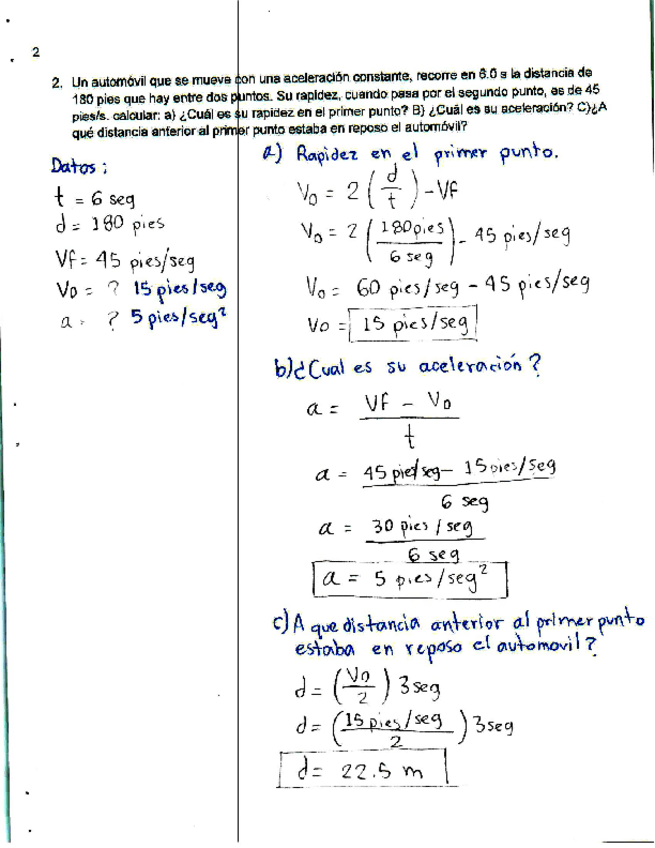 2
2. Un automóvil que se mueve con una aceleración constante, recorre en 6.0 s la distancia de
180 pies que hay entre dos puntos. Su rapidez, cuando pasa por el segundo punto, es de 45
pies/s. calcular: a) ¿Cuál es su rapidez en el primer punto? B) ¿Cuál es su aceleración? C)¿A
qué distancia anterior al primer punto estaba en reposo el automóvil?
Datos:
t = 6 seg
d = 180 pies
Vf = 45 pies/seg
Vo = ? 15 pies/seg
a = ? 5 pies/seg²
a) Rapidez en el primer punto.
Vo = 2 (d/t) - Vf
Vo = 2 (180pies/6 seg) - 45 pies/seg
Vo = 60 pies/seg - 45 pies/seg
Vo = 15 pies/seg
b)¿Cual es su aceleración?
a = Vf - Vo
t
a = 45 pies/seg - 15pies/seg
6 seg
a = 30 pies / seg
6 seg
a = 5 pies/seg²
c) A que distancia anterior al primer punto
estaba en reposo el automovil?
d = (Vo/2) 3seg
d = (15 pies/seg/2) 3seg
d = 22.5 m